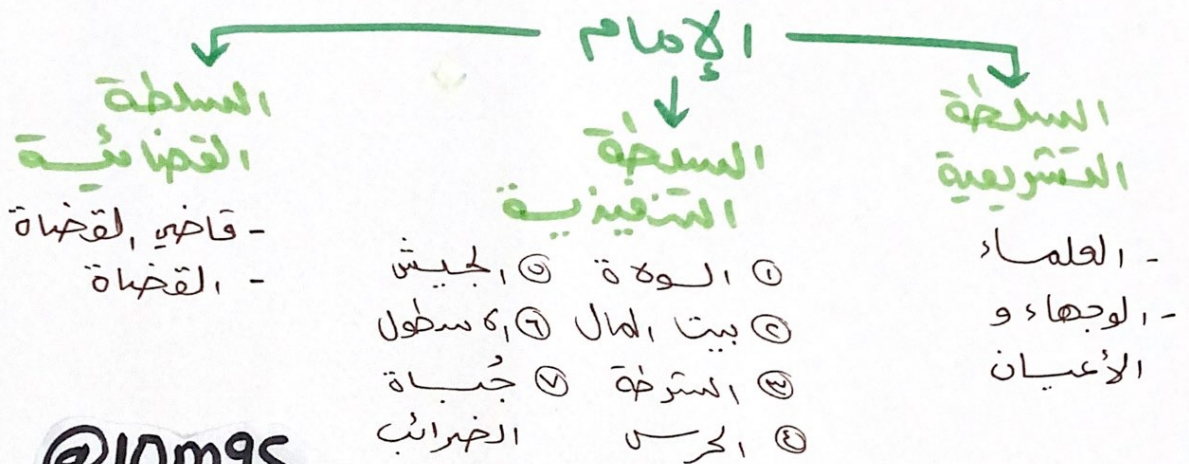 الإمام
السلطة
التشريعية
- العلماء
- الوجهاء و
الأعيان
السلطة
التنفيذية
① الولاة
② بيت المال
③ الشرطة
④ الحرس
⑤ الجيش
⑥ الاسطول
⑦ جُباة
الضرائب
السلطة
القضائية
- قاضي القضاة
- القضاة